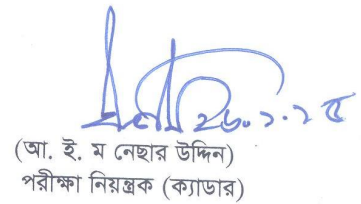 ২৬.১.২৫
(আ. ই. ম নেছার উদ্দিন)
পরীক্ষা নিয়ন্ত্রক (ক্যাডার)